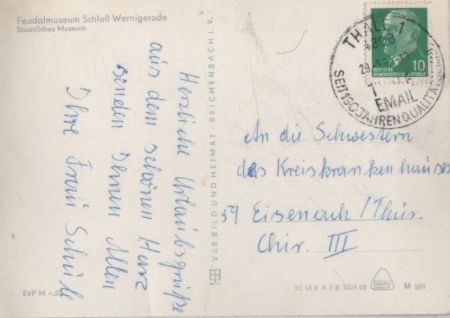 Feudalmuseum Schloß Wernigerode
Staatliches Museum
Herzliche Urlaubsgrüße
aus dem schönen Harz
senden Ihnen Allen
Ihre Frau Schüle
VEB BILD UND HEIMAT · REICHENBACH I. V.
EVP M –,20
THALE 1
EMAIL
SEIT 150 JAHREN QUALITÄT
10
DEUTSCHE
DEMOKRATISCHE REPUBLIK
An die Schwestern
des Kreiskrankenhauses
59 Eisenach/Thür.
Chir. III
III 18 8 A 1 B 1024 68
DAMW
M 189